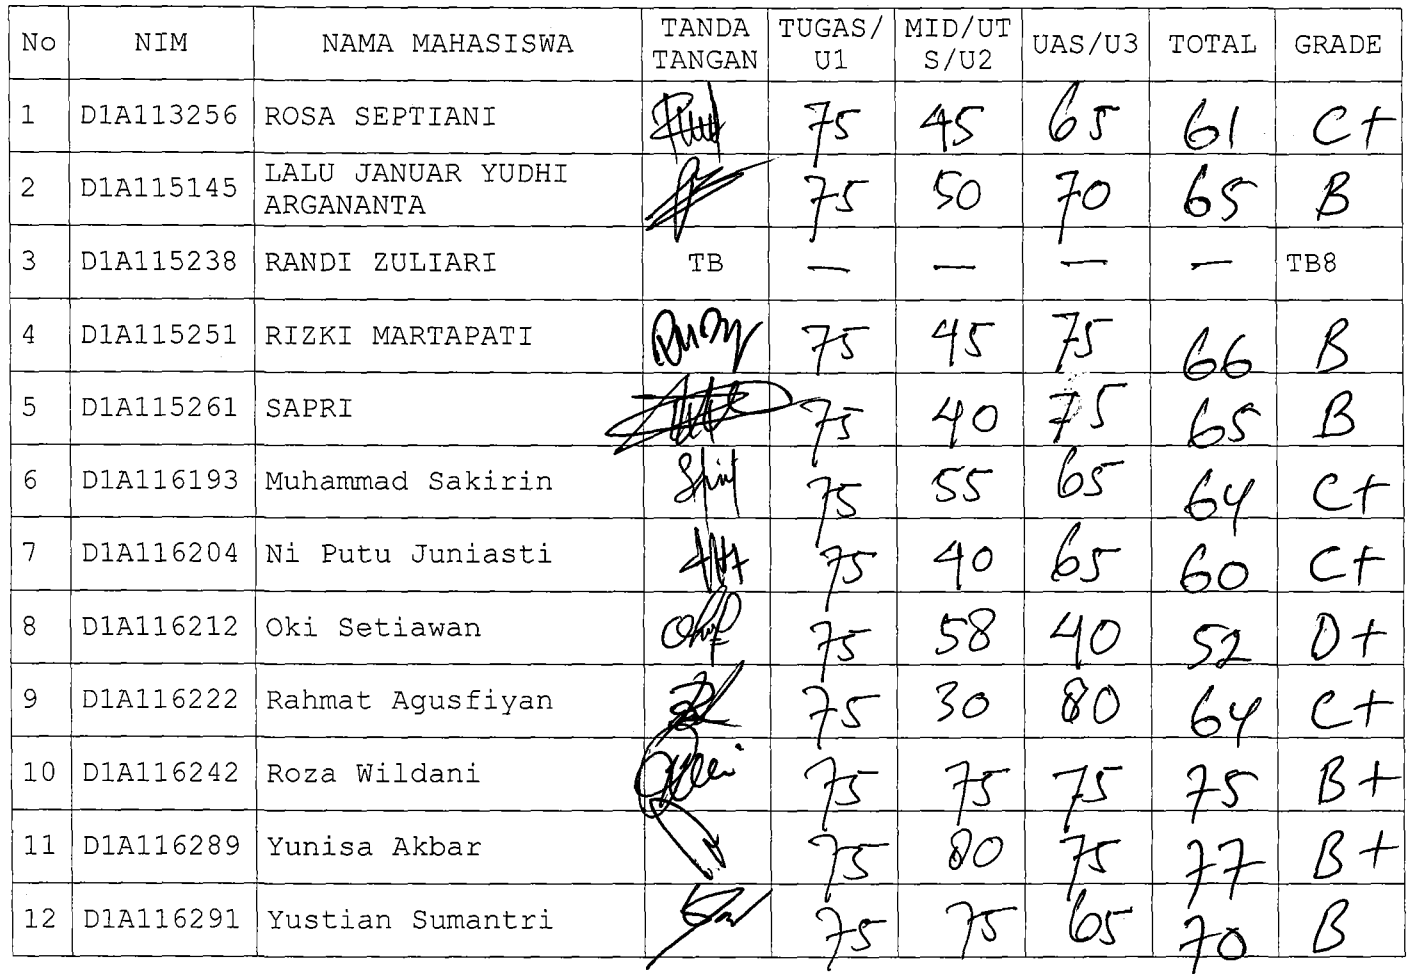 No NIM NAMA MAHASISWA TANDA TANGAN TUGAS/U1 MID/UTS/U2 UAS/U3 TOTAL GRADE
1 D1A113256 ROSA SEPTIANI 75 45 65 61 C+
2 D1A115145 LALU JANUAR YUDHI ARGANANTA 75 50 70 65 B
3 D1A115238 RANDI ZULIARI TB — — — — TB8
4 D1A115251 RIZKI MARTAPATI 75 45 75 66 B
5 D1A115261 SAPRI 75 40 75 65 B
6 D1A116193 Muhammad Sakirin 75 55 65 64 C+
7 D1A116204 Ni Putu Juniasti 75 40 65 60 C+
8 D1A116212 Oki Setiawan 75 58 40 52 D+
9 D1A116222 Rahmat Agusfiyan 75 30 80 64 C+
10 D1A116242 Roza Wildani 75 75 75 75 B+
11 D1A116289 Yunisa Akbar 75 80 75 77 B+
12 D1A116291 Yustian Sumantri 75 75 65 70 B